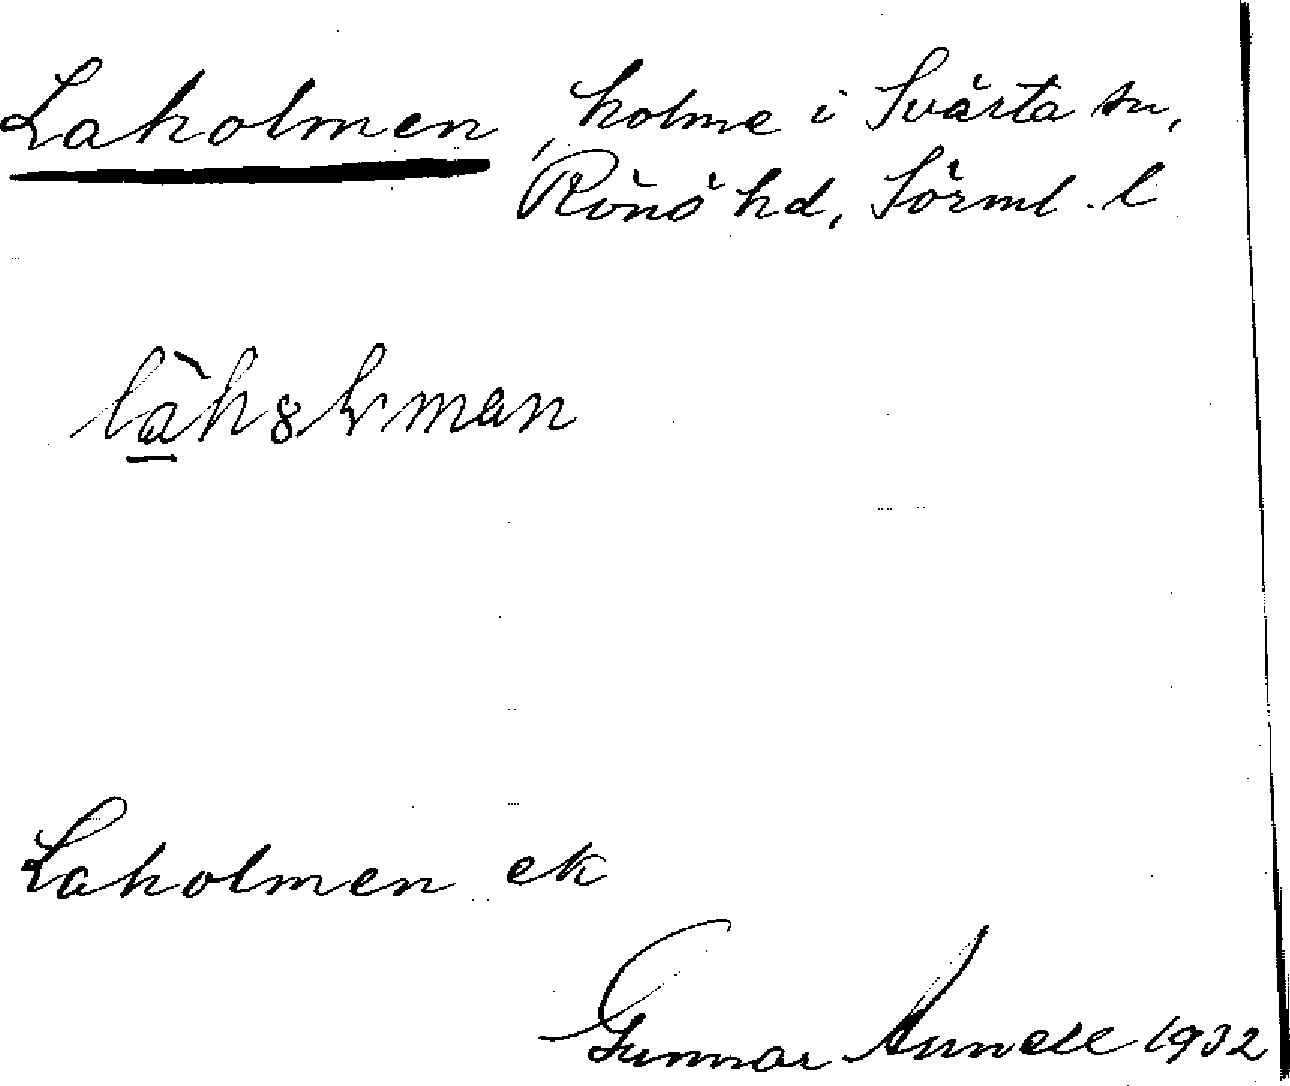 Laholmen, holme i Svärta sn,
Rönö hd, Sörml. l
Laholmen ek
Gunnar Annell 1932